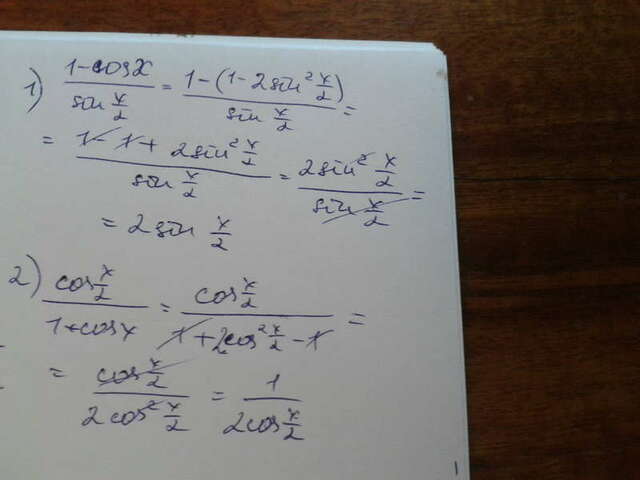 1) (1-cosx)/(sin x/2) = (1-(1-2sin² x/2))/(sin x/2) =
= (1-1+2sin² x/2)/(sin x/2) = (2sin² x/2)/(sin x/2) =
= 2sin x/2
2) (cos x/2)/(1+cosx) = (cos x/2)/(1+2cos² x/2 -1) =
= (cos x/2)/(2cos² x/2) = 1/(2cos x/2)